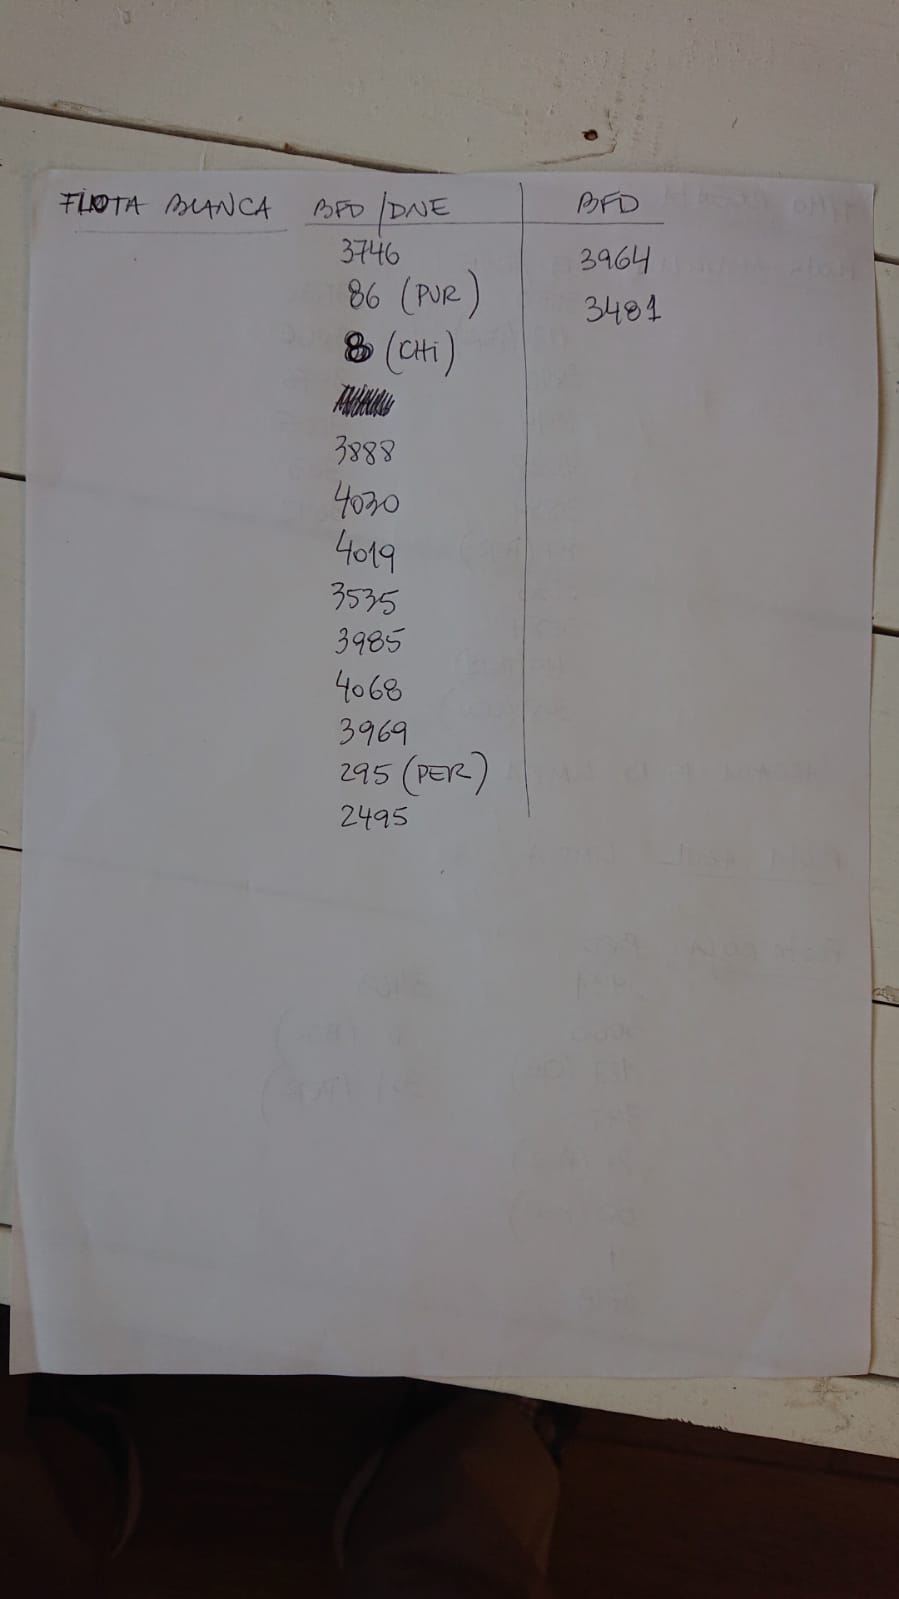 FLOTA BLANCA BFD/DNE BFD
3746 3964
86 (PUR) 3481
8 (CHi)
3888
4030
4019
3535
3985
4068
3969
295 (PER)
2495